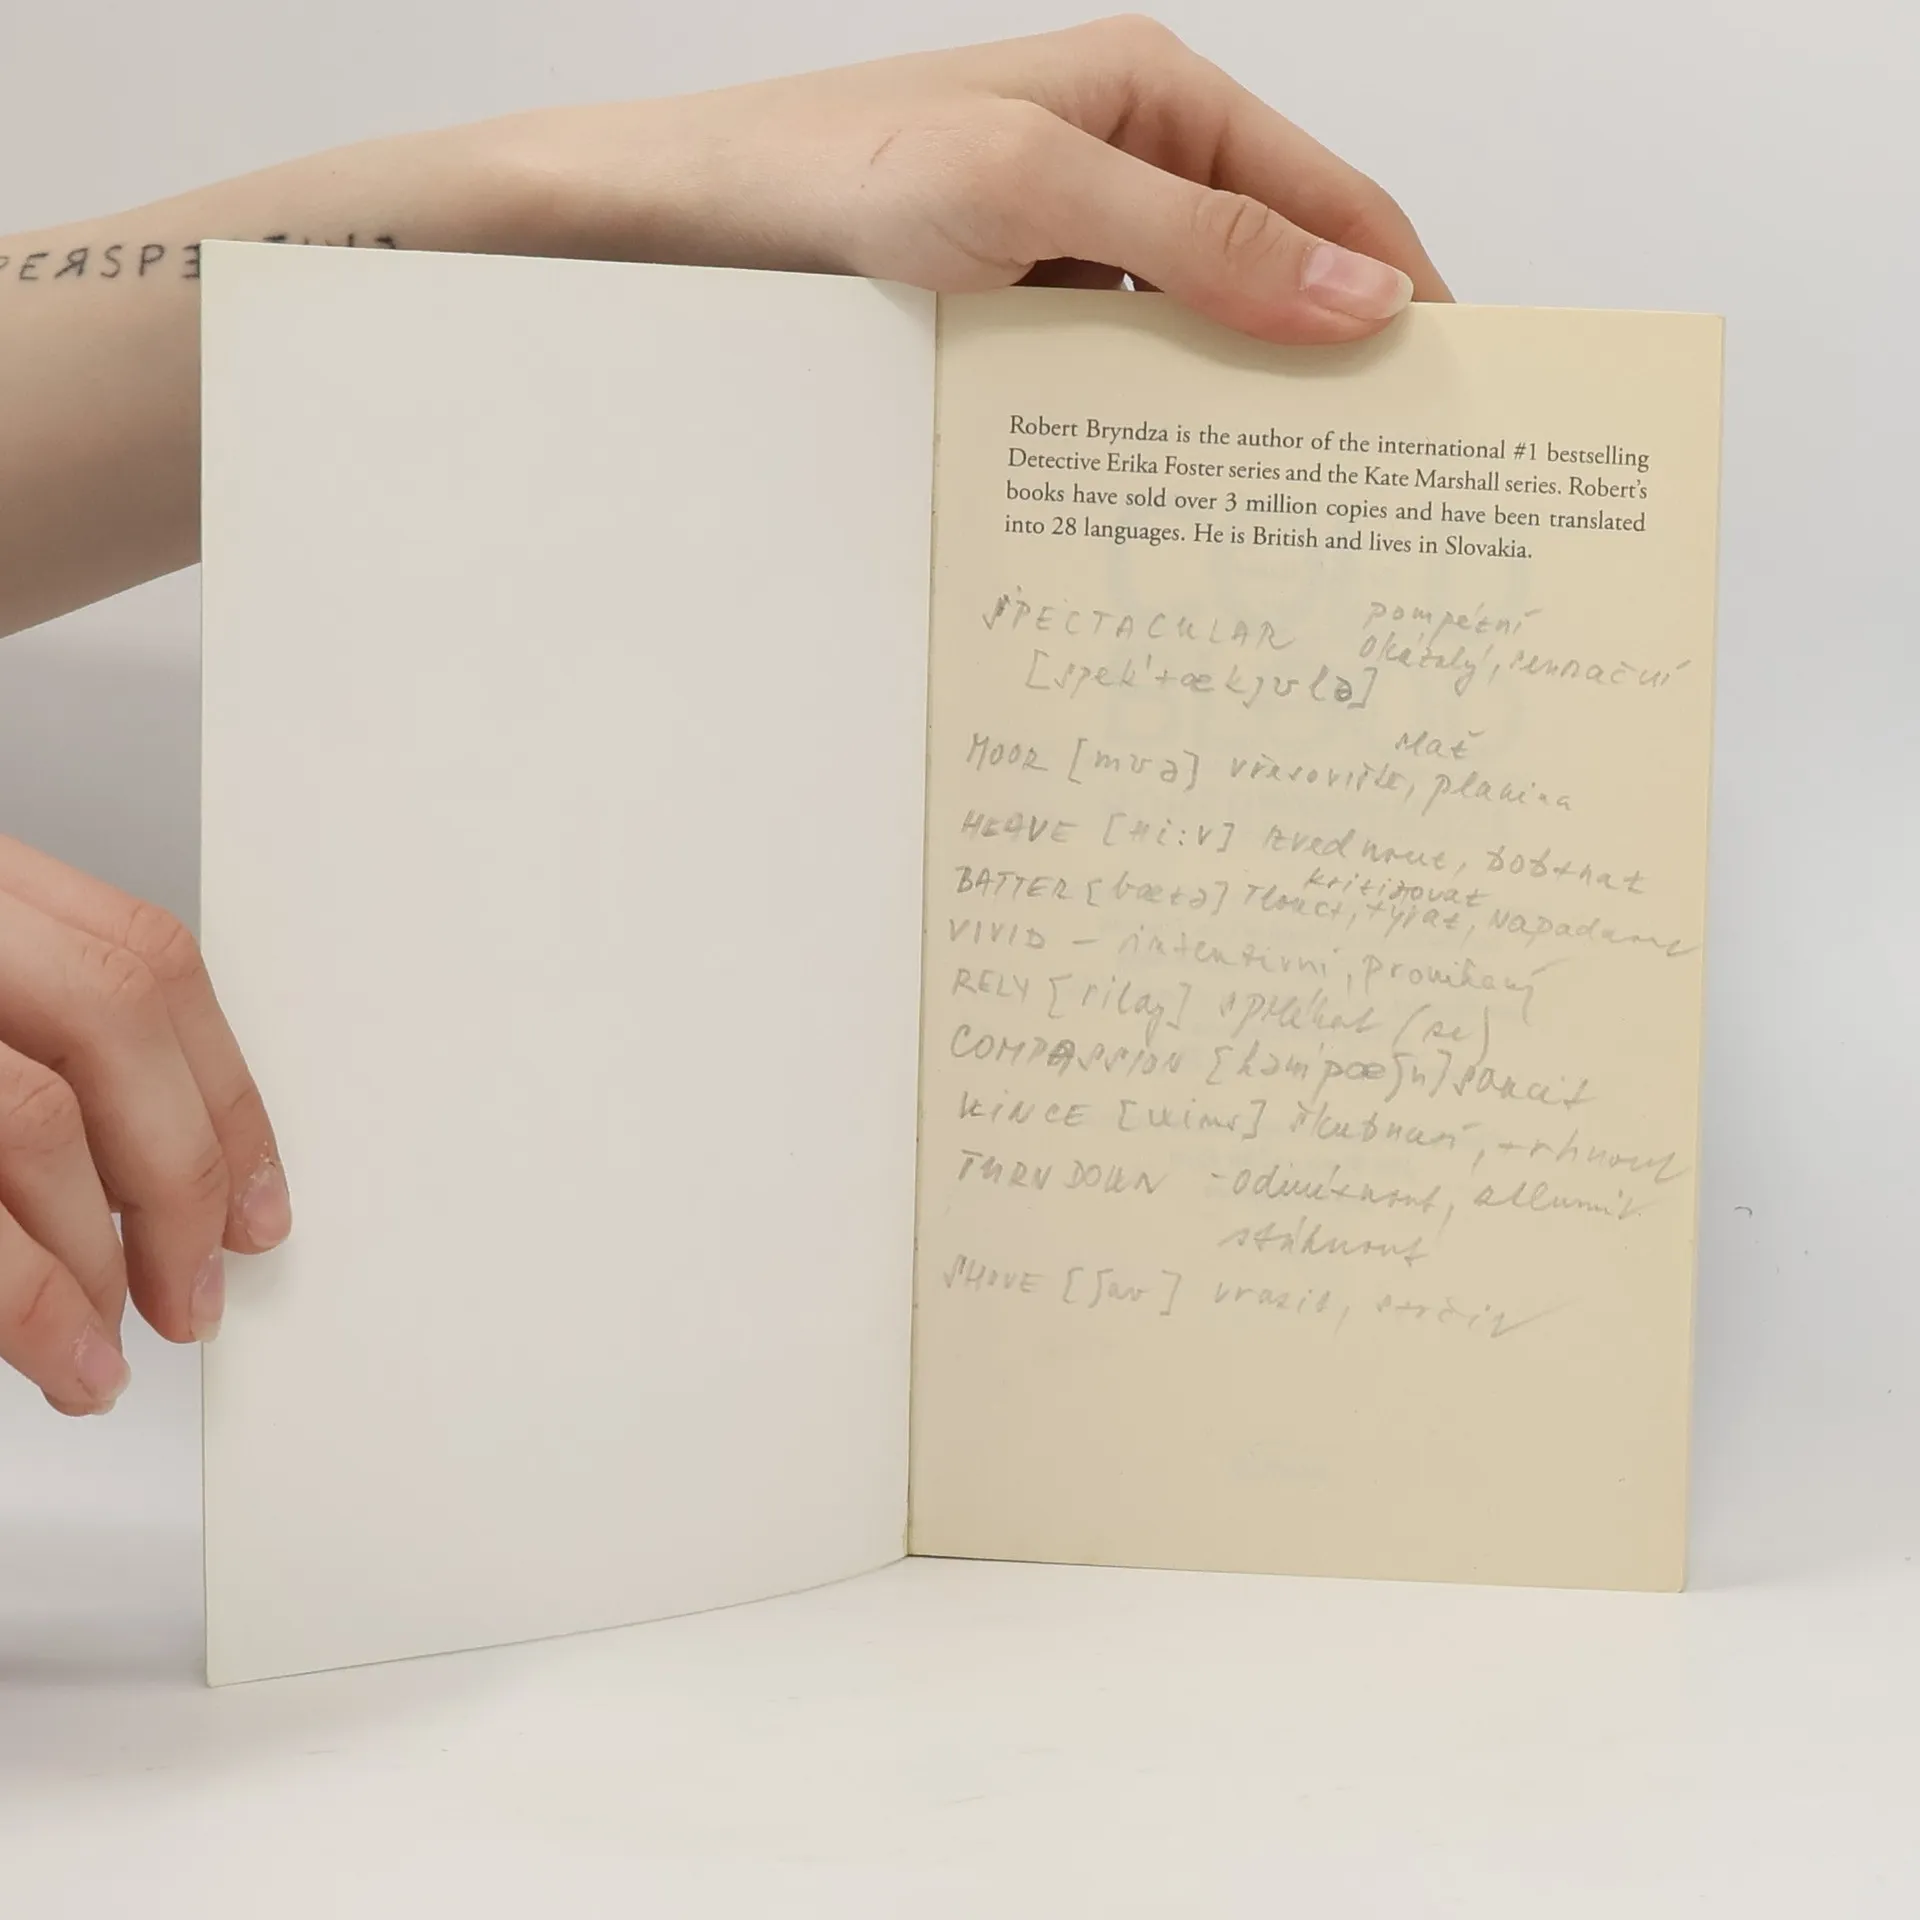 PERSPE
Robert Bryndza is the author of the international #1 bestselling
Detective Erika Foster series and the Kate Marshall series. Robert's
books have sold over 3 million copies and have been translated
into 28 languages. He is British and lives in Slovakia.
SPECTACULAR pompézní
okázalý, senzační
[spek'tækjʊlə]
slať
MOOR [mʊə] vřesoviště, planina
HEAVE [Hi:v] zvednout,
kritizovat
BATTER [bætə] Tlouct, týrat, napadnout
VIVID – intenzivní, pronikavý
RELY [rilaj] spoléhat (se)
COMPASSION [kəm'pæʃn] soucit
WINCE [wins] škubnutí, trhnout
TURN DOWN - odmítnout, ztlumit
stáhnout
SHOVE [ʃav] vrazit, strčit